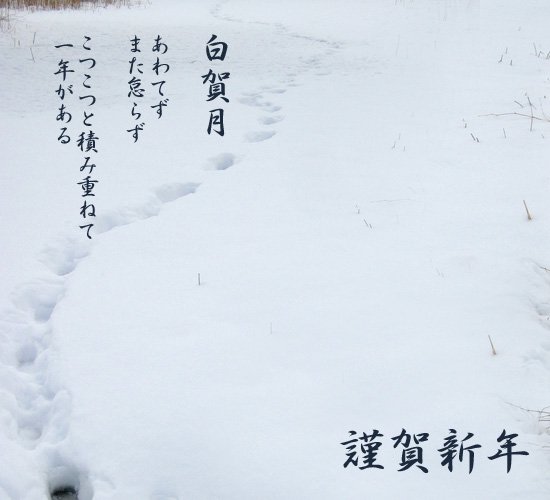 白賀月
あわてず
また怠らず
こつこつと積み重ねて
一年がある
謹賀新年